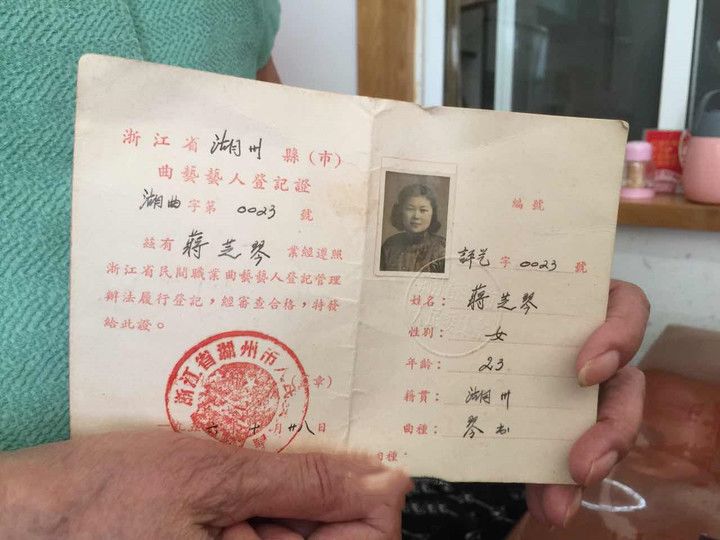 浙江省湖州縣(市)
曲藝藝人登記證
湖曲字第0023號
茲有蔣芝琴業經遵照
浙江省民間職業曲藝藝人登記管理
辦法履行登記，經審查合格，特發
給此證。
浙江省湖州市人
章)
十月廿八日
編號
評芝字0023號
姓名：蔣芝琴
性別：女
年齡：23
籍貫：湖州
曲種：琴書